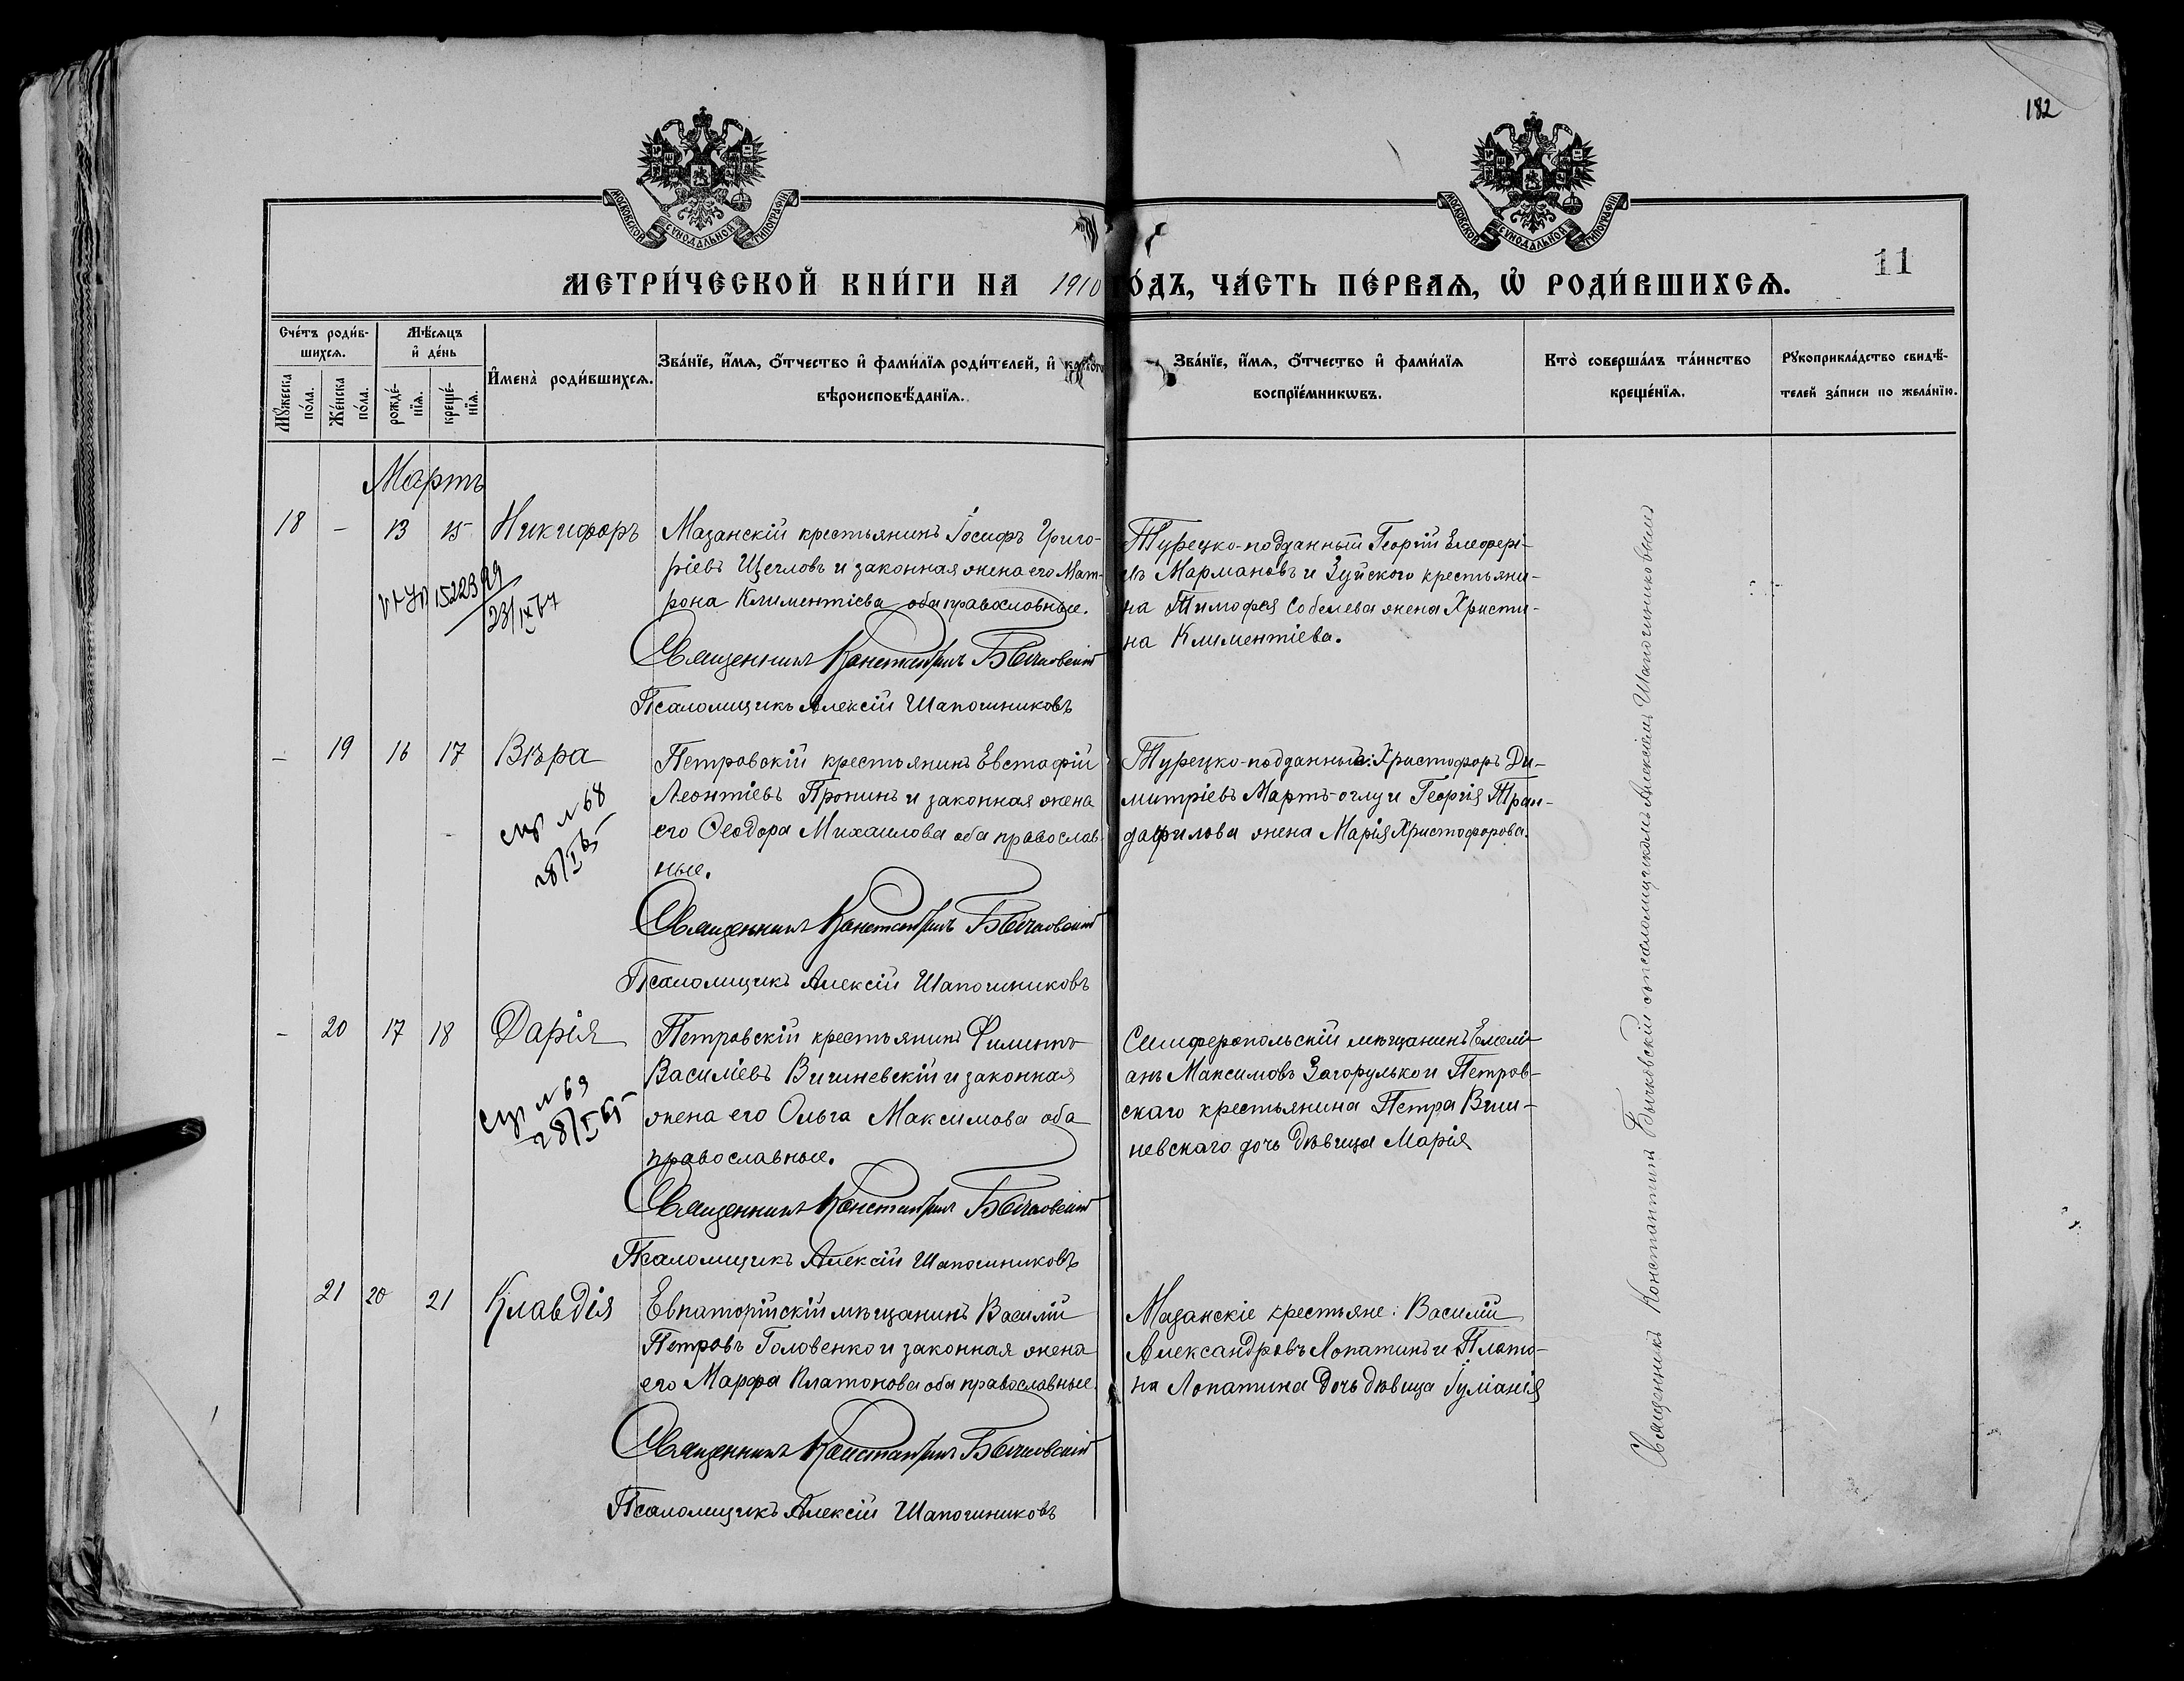 182
МОСКОВСКОЙ СѴНОДАЛЬНОЙ ТИПОГРАФІИ
МОСКОВСКОЙ СѴНОДАЛЬНОЙ ТИПОГРАФІИ
11
МЕТРИ́ЧЕСКОЙ КНИ́ГИ НА 1910 О́ДЪ, ЧА́СТЬ ПЕ́РВАѦ, Ѡ҆ РОДИ́ВШИХСѦ.
Сче́тъ роди́в-
шихсѧ.
Мꙋ́жеска по́ла.
Же́нска по́ла.
Мѣ́сѧцъ
и҆ де́нь
рожде́-
нїѧ.
креще́-
нїѧ.
И҆мена̀ роди́вшихсѧ.
Зва́нїе, и҆́мѧ, ѻ҆́тчество и҆ фами́лїѧ роди́телей, и҆ како́гѡ
вѣроисповѣ́данїѧ.
Зва́нїе, и҆́мѧ, ѻ҆́тчество и҆ фами́лїѧ
воспрїе́мникѡвъ.
Кто̀ соверша́лъ та́инство
креще́нїѧ.
Рꙋкоприкла́дство свидѣ́-
телей за́писи по жела́нїю.
Мартъ
18 - 13 15 Никифоръ
Мазанскій крестьянинъ Іосифъ Григо-
ріевъ Щегловъ и законная жена его Мат-
рона Климентіева оба православные.
Священникъ Константинъ Бычковскій
Псаломщикъ Алексій Шапошниковъ
Турецко-подданный Георгій Елефері-
евъ Мармановъ и Зуйского крестьяни-
на Тимофея Соболева жена Христи-
на Климентіева.
15223
- 19 16 17 Вѣра
№ 68
28/I 65
Петровскій крестьянинъ Евстафій
Леонтіевъ Пронинъ и законная жена
его Ѳеодора Михаилова оба православ-
ные.
Священникъ Константинъ Бычковскій
Псаломщикъ Алексій Шапошниковъ
Турецко-подданный: Христофоръ Ди-
митріевъ Мартъ-оглу и Георгія Тран-
дафилова жена Марія Христофорова.
- 20 17 18 Дарія
№ 69
28/I 65
Петровскій крестьянинъ Филиппъ
Василіевъ Вишневскій и законная
жена его Ольга Максимова оба
православные.
Священникъ Константинъ Бычковскій
Псаломщикъ Алексій Шапошниковъ
Симферопольскій мѣщанинъ Емелі-
анъ Максимовъ Загорулько и Петров-
скаго крестьянина Петра Виш-
невскаго дочь дѣвица Марія
21 20 21 Клавдія
Евпаторійскій мѣщанинъ Василій
Петровъ Головенко и законная жена
его Марфа Платонова оба православные.
Священникъ Константинъ Бычковскій
Псаломщикъ Алексій Шапошниковъ
Мазанскіе крестьяне: Василій
Александровъ Лопатинъ и Плато-
на Лопатина дочь дѣвица Іуліанія
Священникъ Константинъ Бычковскій съ псаломщикомъ Алексіемъ Шапошниковымъ